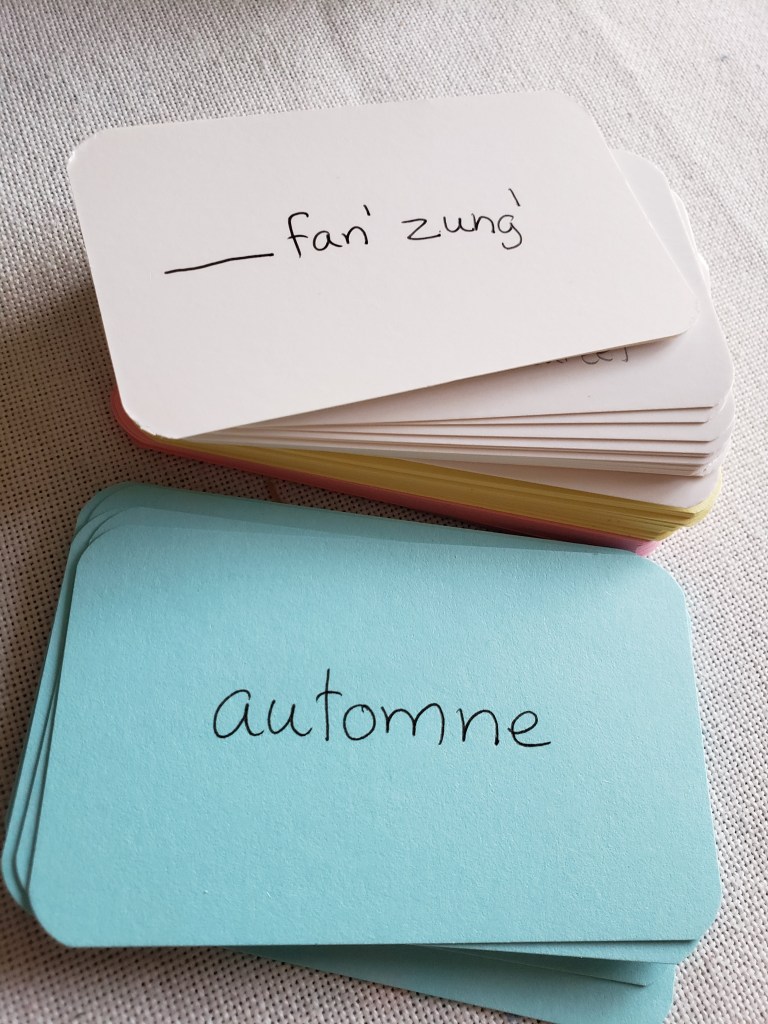 ___ fan' zung'
automne